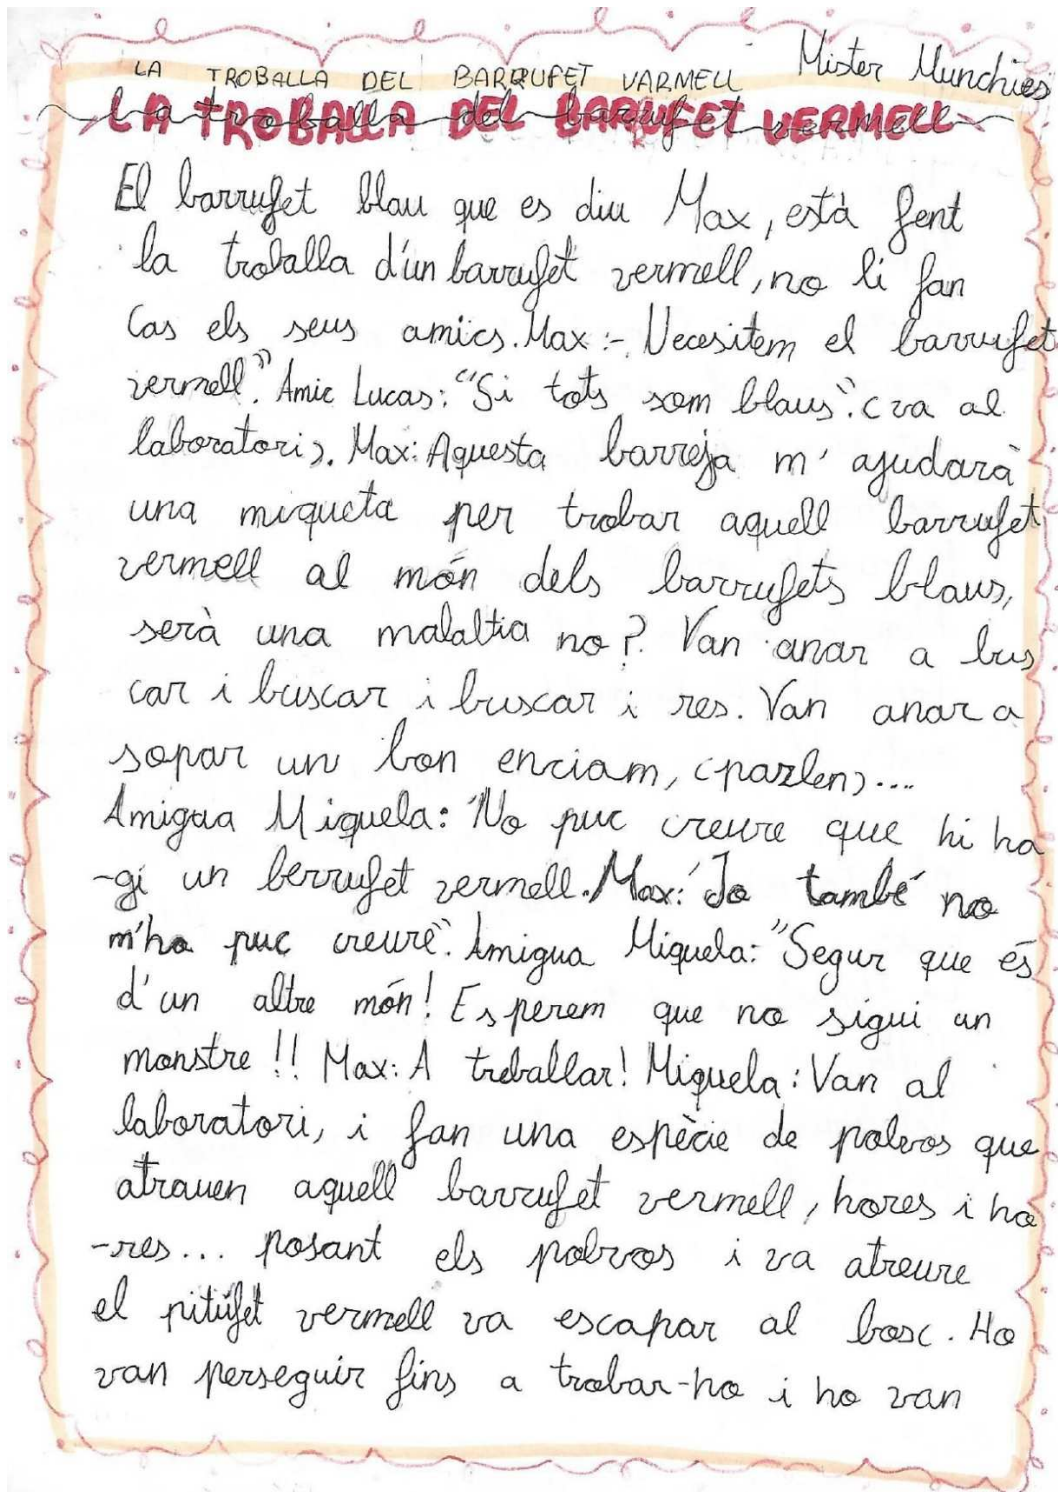 Mister Munchies
LA TROBALLA DEL BARRUFET VARMELL
LA TROBALLA DEL BARRUFET VERMELL
El barrufet blau que es diu Max, està fent
la troballa d'un barrufet vermell, no li fan
Cas els seus amics. Max:- Necesitem el barrufet
vermell". Amic Lucas: "Si tots som blaus". (va al
laboratori). Max: Aquesta barreja m' ajudarà
una miqueta per trobar aquell barrufet
vermell al món dels barrufets blaus,
serà una malaltia no? Van anar a bus
car i buscar i buscar i res. Van anar a
sopar un bon enciam, (parlen)...
Amigua Miquela: "No puc creure que hi ha
-gi un berrufet vermell. Max: "Jo també no
m'ho puc creure". Amigua Miquela: "Segur que és
d'un altre món! Esperem que no sigui un
monstre!! Max: A treballar! Miquela: Van al
laboratori, i fan una espècie de polvos que
atrauen aquell barrufet vermell, hores i ho
-res... posant els polvos i va atreure
el pitufet vermell va escapar al bosc. Ho
van perseguir fins a trobar-ho i ho van